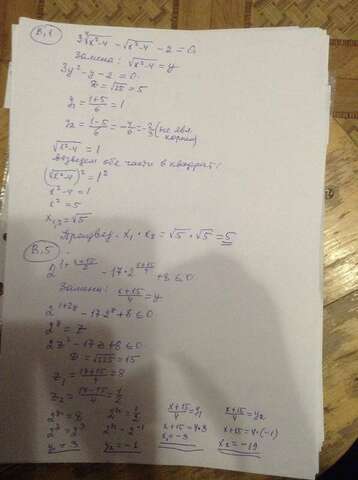 В.1
3∜x²-4 - √x²-4 - 2 = 0
Замена: √x²-4 = y
3y² - y - 2 = 0
D = √25 = 5
y₁ = (1+5)/6 = 1
y₂ = (1-5)/6 = -4/6 = -2/3 (не явл. корнем)
√x²-4 = 1
возведем обе части в квадрат:
(√x²-4)² = 1²
x²-4 = 1
x² = 5
x₁,₂ = √5
Произвед. x₁ · x₂ = √5 · √5 = 5
В.5
2^(1+(x+15)/2) - 17·2^((x+15)/4) + 8 ≤ 0
Замена: (x+15)/4 = y
2^(1+2y) - 17·2^y + 8 ≤ 0
2^y = z
2z² - 17z + 8 ≤ 0
D = √225 = 15
z₁ = (17+15)/4 = 8
z₂ = (17-15)/4 = 1/2
2^y = 8 2^y = 1/2 (x+15)/4 = y₁ (x+15)/4 = y₂
2^y = 2³ 2^y = 2^-1 x+15 = 4·3 x+15 = 4·(-1)
y₁ = 3 y₂ = -1 x₁ = -3 x₂ = -19